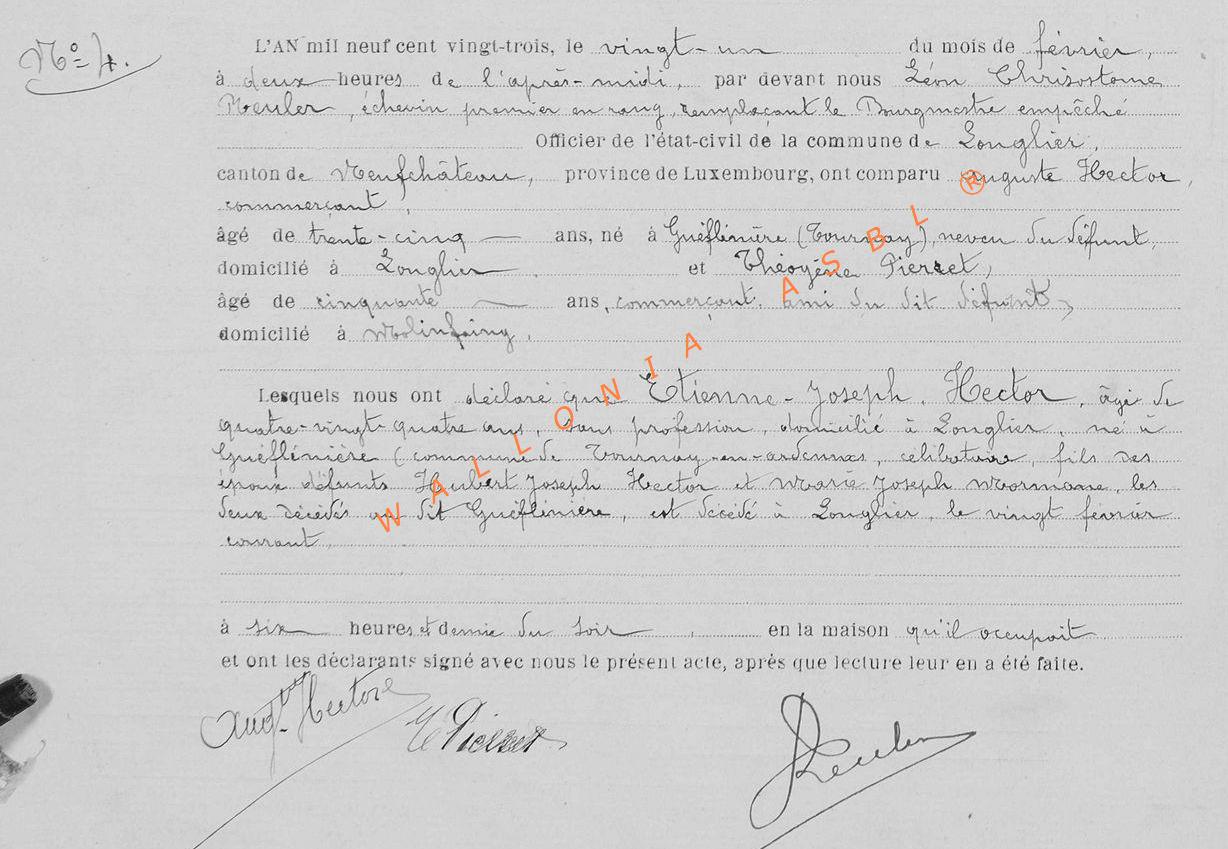 N° 4.
L'AN mil neuf cent vingt-trois, le vingt-un du mois de février,
à deux heures de l'après-midi, par devant nous Léon Chrisostome
Reuler, échevin premier en rang, remplaçant le Bourgmestre empêché
Officier de l'état-civil de la commune de Longlier,
canton de Neufchâteau, province de Luxembourg, ont comparu Auguste Hector,
commerçant,
âgé de trente-cinq ans, né à Gueflinière (Tournay), neveu du défunt,
domicilié à Longlier et Théogène Pierret,
âgé de cinquante ans, commerçant, ami du dit défunt,
domicilié à Molinfaing,
Lesquels nous ont déclaré que Etienne-Joseph, Hector, âgé de
quatre-vingt-quatre ans, sans profession, domicilié à Longlier, né à
Gueflénière (commune de Tournay-en-ardennes, célibataire, fils des
époux défunts Hubert Joseph Hector et Marie Joseph Mormane, les
deux décédés au dit Gueflinière, est décédé à Longlier, le vingt février
courant,
à six heures et demie du soir en la maison qu'il occupait
et ont les déclarants signé avec nous le présent acte, après que lecture leur en a été faite.
Augte Hector Th Pierret Reuler
WALLONIA ASBL ®